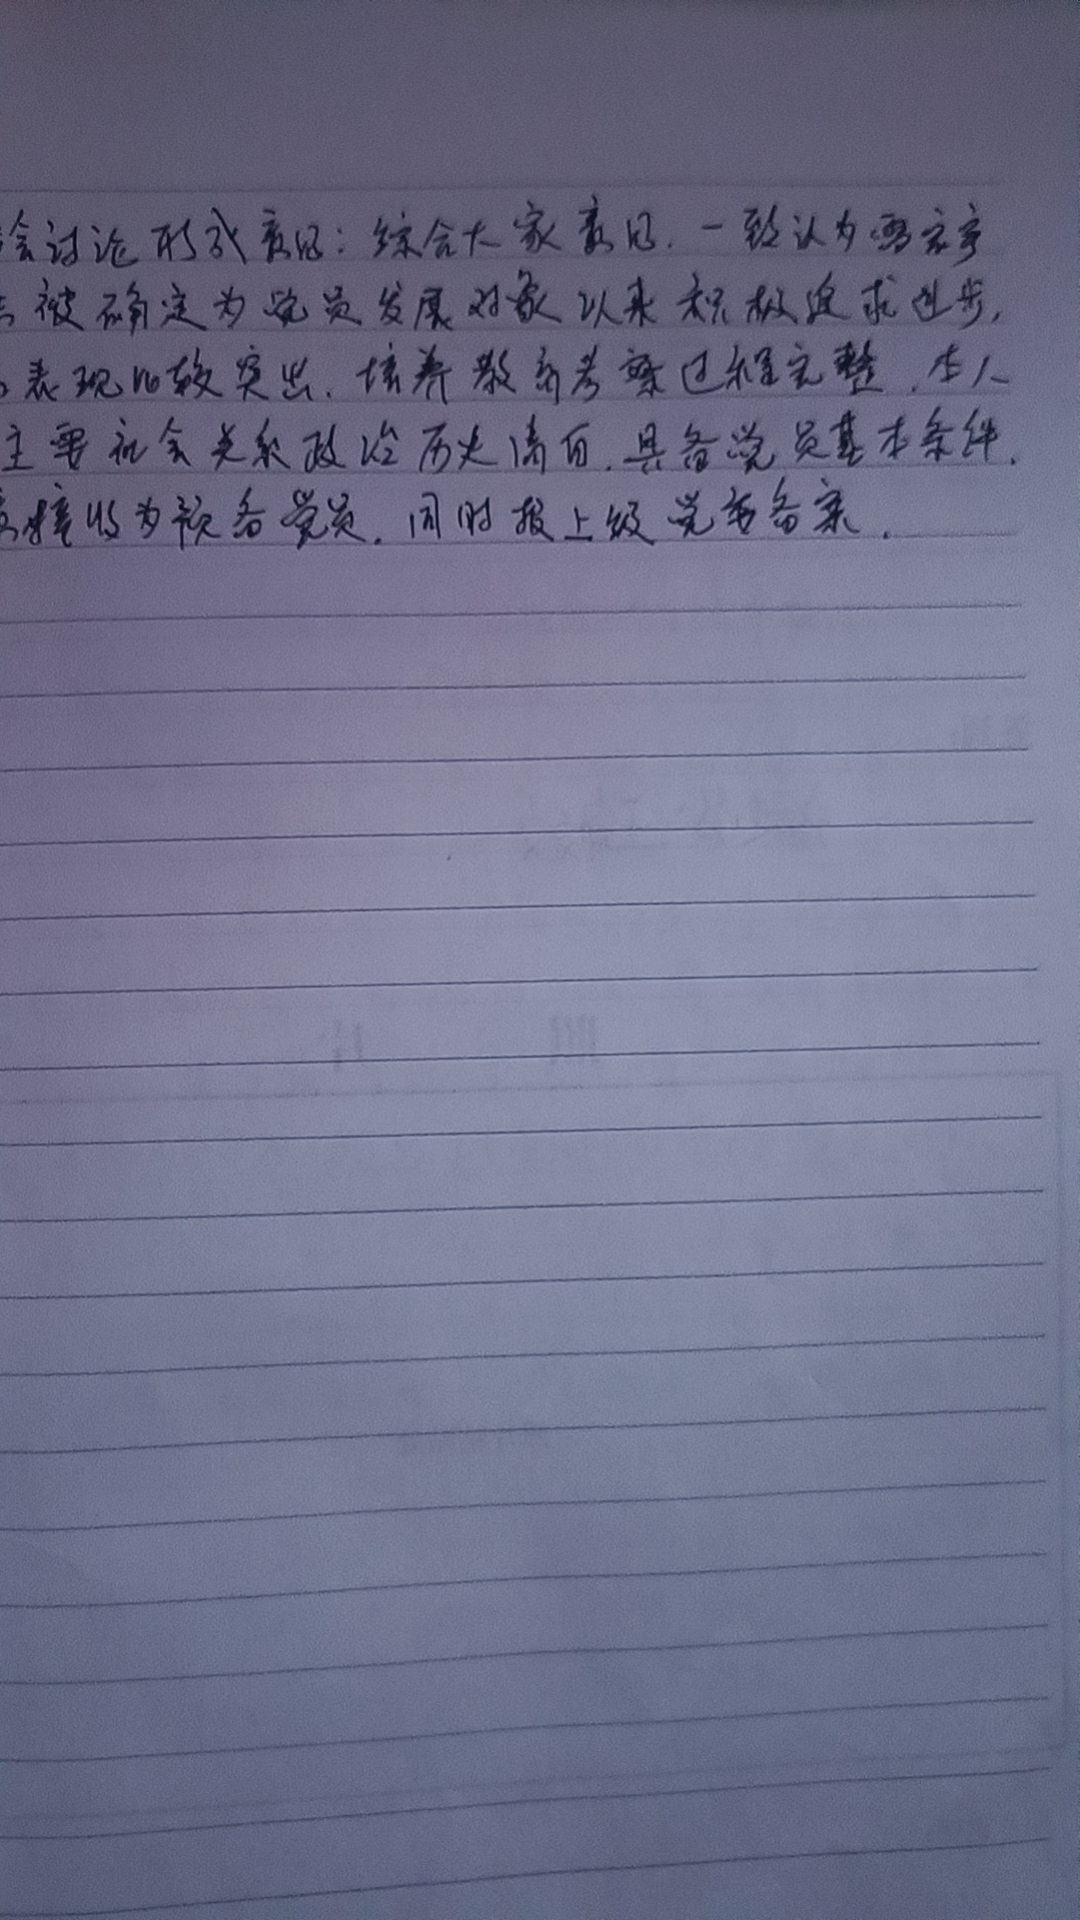 会讨论形成意见：综合大家意见，一致认为
被确定为党员发展对象以来积极追求进步，
表现比较突出，培养教育考察过程完整，本人
主要社会关系政治历史清白，具备党员基本条件，
接收为预备党员，同时报上级党委备案。
照 片